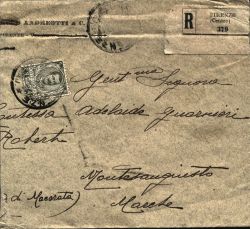 ANDREOTTI & C.
FIRENZE
R
FIRENZE
(Centro)
379
Gent.ma Signora
Contessa Adelaide Guarnieri
Roberti
Montesanguisto
(di Macerata) Marche